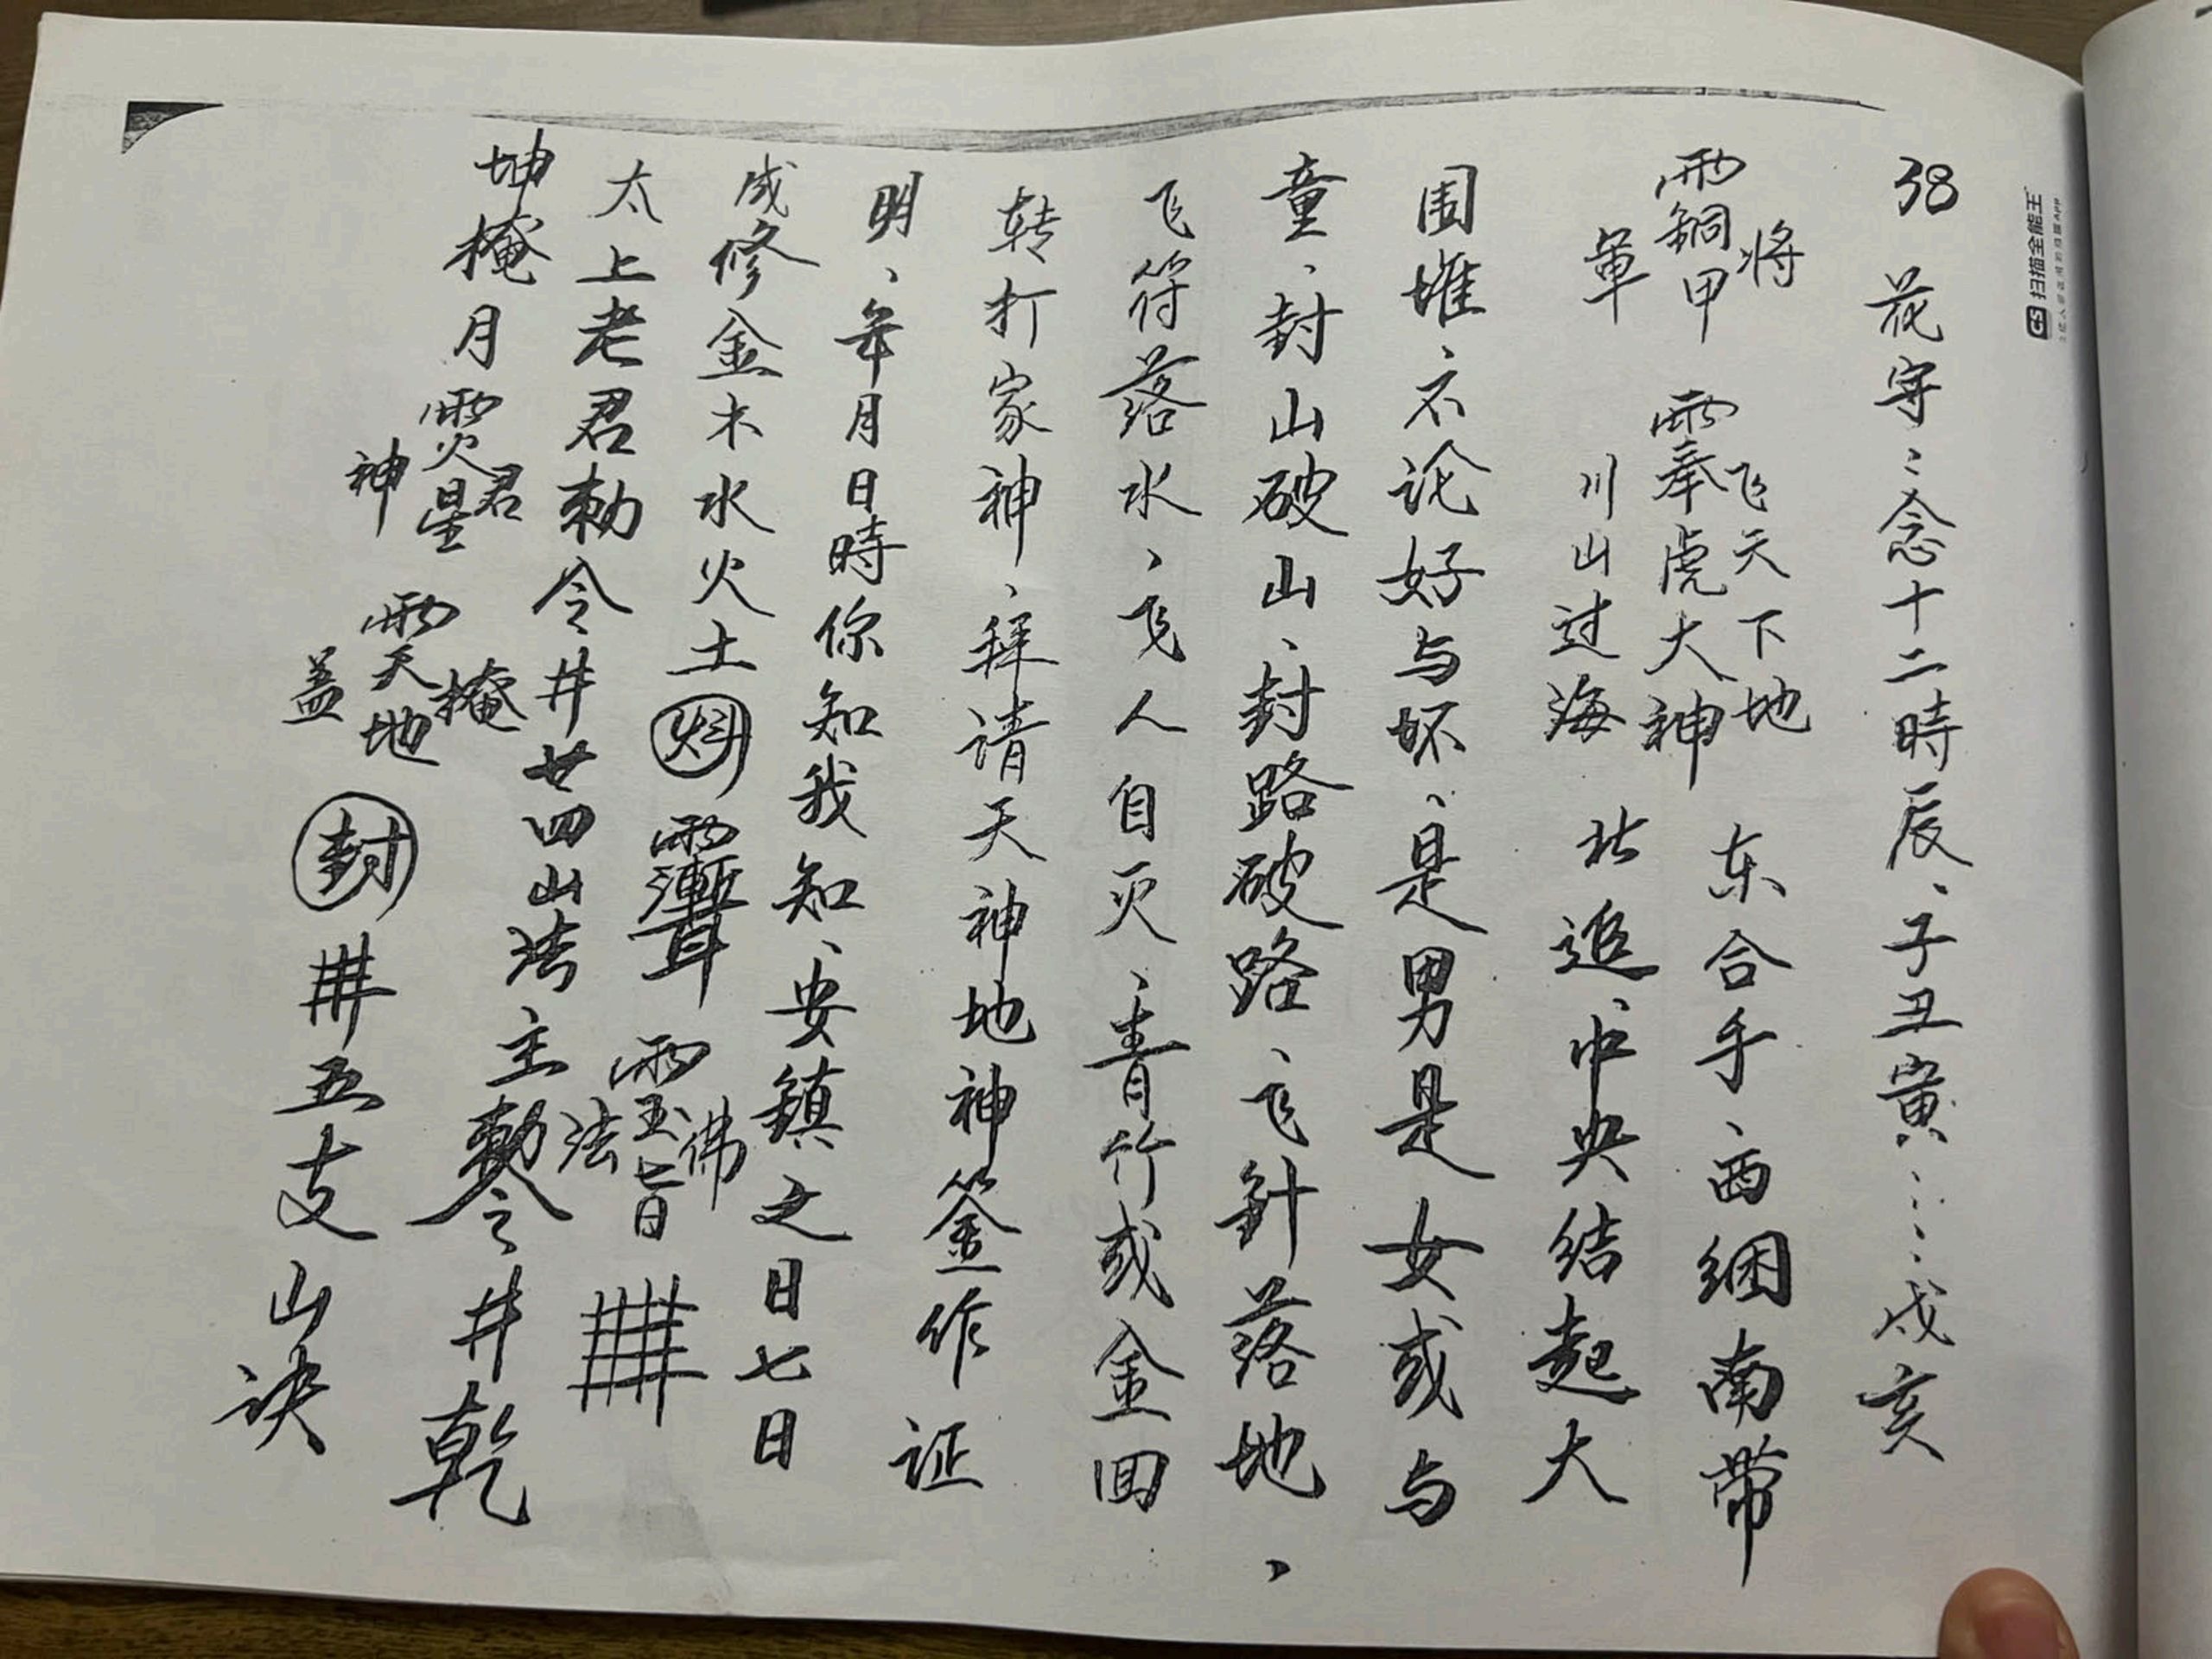 38 花字：念十二時辰、子丑寅……戌亥
將 飞天下地 东合手、西綑南带
銅甲 奉虎大神
軍 川山过海 北追、中央结起大
围堆、不论好与坏、是男是女或与
童、封山破山、封路破路、飞針落地、
飞符落水、飞人自灭、青竹或金回
转打家神、拜请天神地神釜作证
明、年月日時你知我知、安鎮之日七日
成修金木水火土 佛
玉旨
法
太上老君勅令井廿四山法主勅令井乾
坤掩月 君 掩
火星 天地
神 盖 封 井五支山诀
扫描全能王